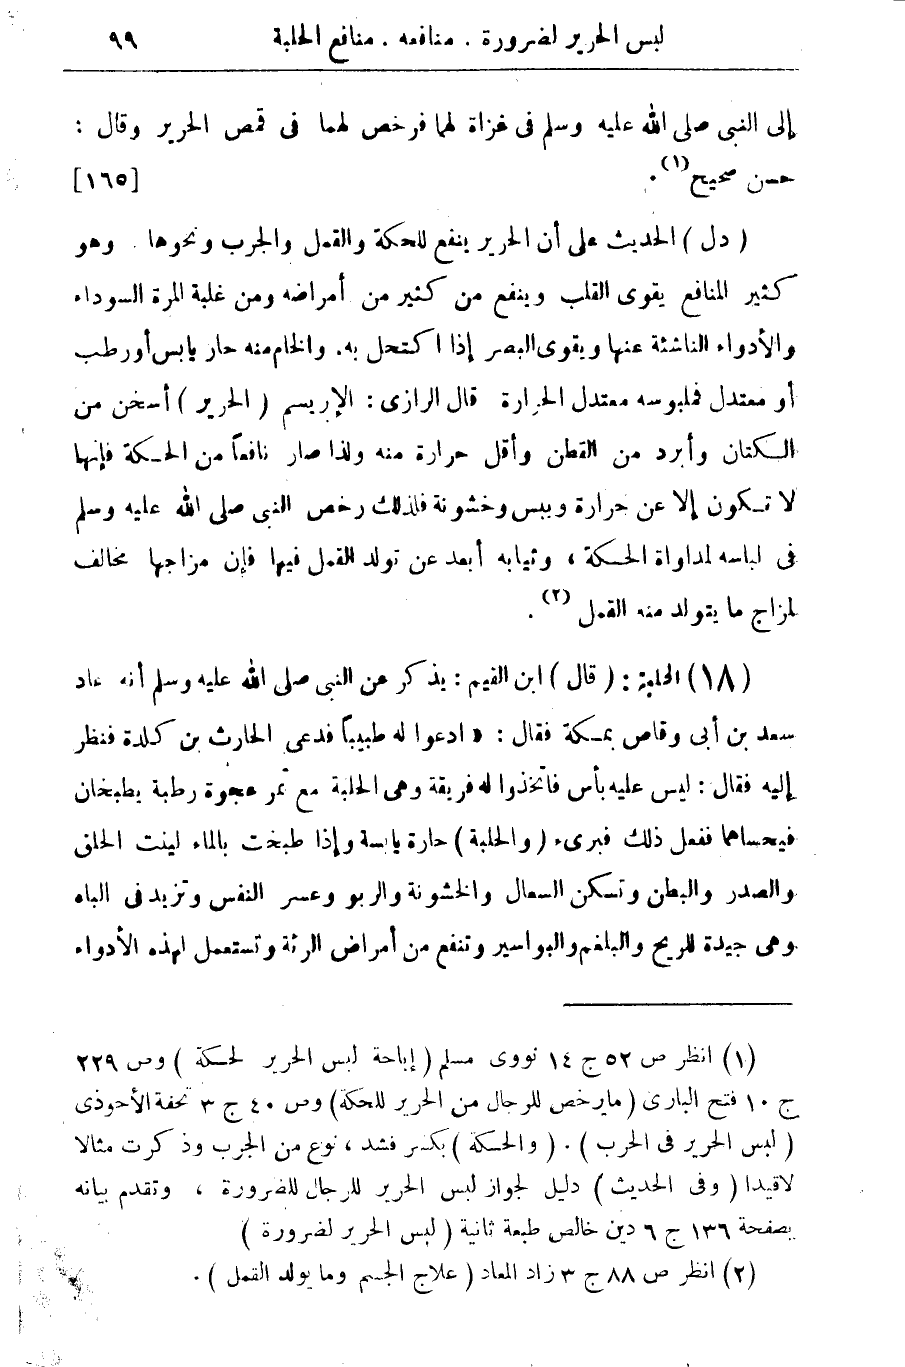 لبس الحرير لضرورة . منافعه . منافع الحلبة ٩٩
إلى النبى صلى الله عليه وسلم فى غزاة لهما فرخص لهما فى قمص الحرير وقال :
حسن صحيح(١) . [١٦٥]
( دل ) الحديث على أن الحرير ينفع للحكة والقمل والجرب ونحوها . وهو
كثير المنافع يقوى القلب وينفع من كثير من أمراضه ومن غلبة المرة السوداء
والأدواء الناشئة عنها ويقوى البصر إذا اكتحل به . والخام منه حار يابس أو رطب
أو معتدل فملبوسه معتدل الحرارة قال الرازى : الإبريسم ( الحرير ) أسخن من
الكتان وأبرد من القطن وأقل حرارة منه ولذا صار نافعاً من الحكة فإنها
لا تكون إلا عن حرارة ويبس وخشونة فلذلك رخص النبى صلى الله عليه وسلم
فى لباسه لمداواة الحكة ، وثيابه أبعد عن تولد القمل فيها فإن مزاجها مخالف
لمزاج ما يتولد منه القمل (٢) .
(١٨) الحلبة : ( قال ) ابن القيم : يذكر عن النبى صلى الله عليه وسلم أنه عاد
سعد بن أبى وقاص بمكة فقال : « ادعوا له طبيباً فدعى الحارث بن كلدة فنظر
إليه فقال : ليس عليه بأس فاتخذوا له فريقة وهى الحلبة مع تمر عجوة رطبة يطبخان
فيحساهما ففعل ذلك فبرىء ( والحلبة ) حارة يابسة وإذا طبخت بالماء لينت الحلق
والصدر والبطن وتسكن السعال والخشونة والربو وعسر النفس وتزيد فى الباه
وهى جيدة للريح والبلغم والبواسير وتنفع من أمراض الرئة وتستعمل لهذه الأدواء
(١) انظر ص ٥٢ ج ١٤ نووى مسلم ( إباحة لبس الحرير لحكة ) وص ٢٢٩
ج ١٠ فتح البارى ( ما يرخص للرجال من الحرير للحكة ) وص ٤٠ ج ٣ تحفة الأحوذى
( لبس الحرير فى الحرب ) . ( والحكة ) بكسر فشد ، نوع من الجرب وذكرت مثالا
لا قيدا ( وفى الحديث ) دليل لجواز لبس الحرير للرجال للضرورة ، وتقدم بيانه
بصفحة ١٣٦ ج ٦ دين خالص طبعة ثانية ( لبس الحرير لضرورة )
(٢) انظر ص ٨٨ ج ٣ زاد المعاد ( علاج الجسم وما يولد القمل ) .